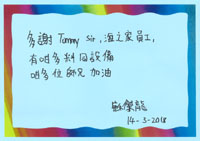 多謝 Tommy Sir，海之家員工，
有咁多 設備
咁多位師兄加油
龍
14-3-2018